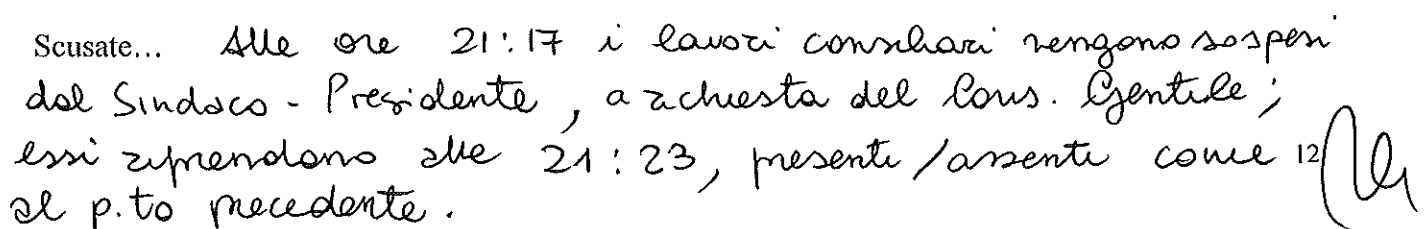 Scusate... Alle ore 21:17 i lavori consiliari vengono sospesi
dal Sindaco - Presidente, a richiesta del Cons. Gentile;
essi riprendono alle 21:23, presenti/assenti come 12
al p.to precedente.